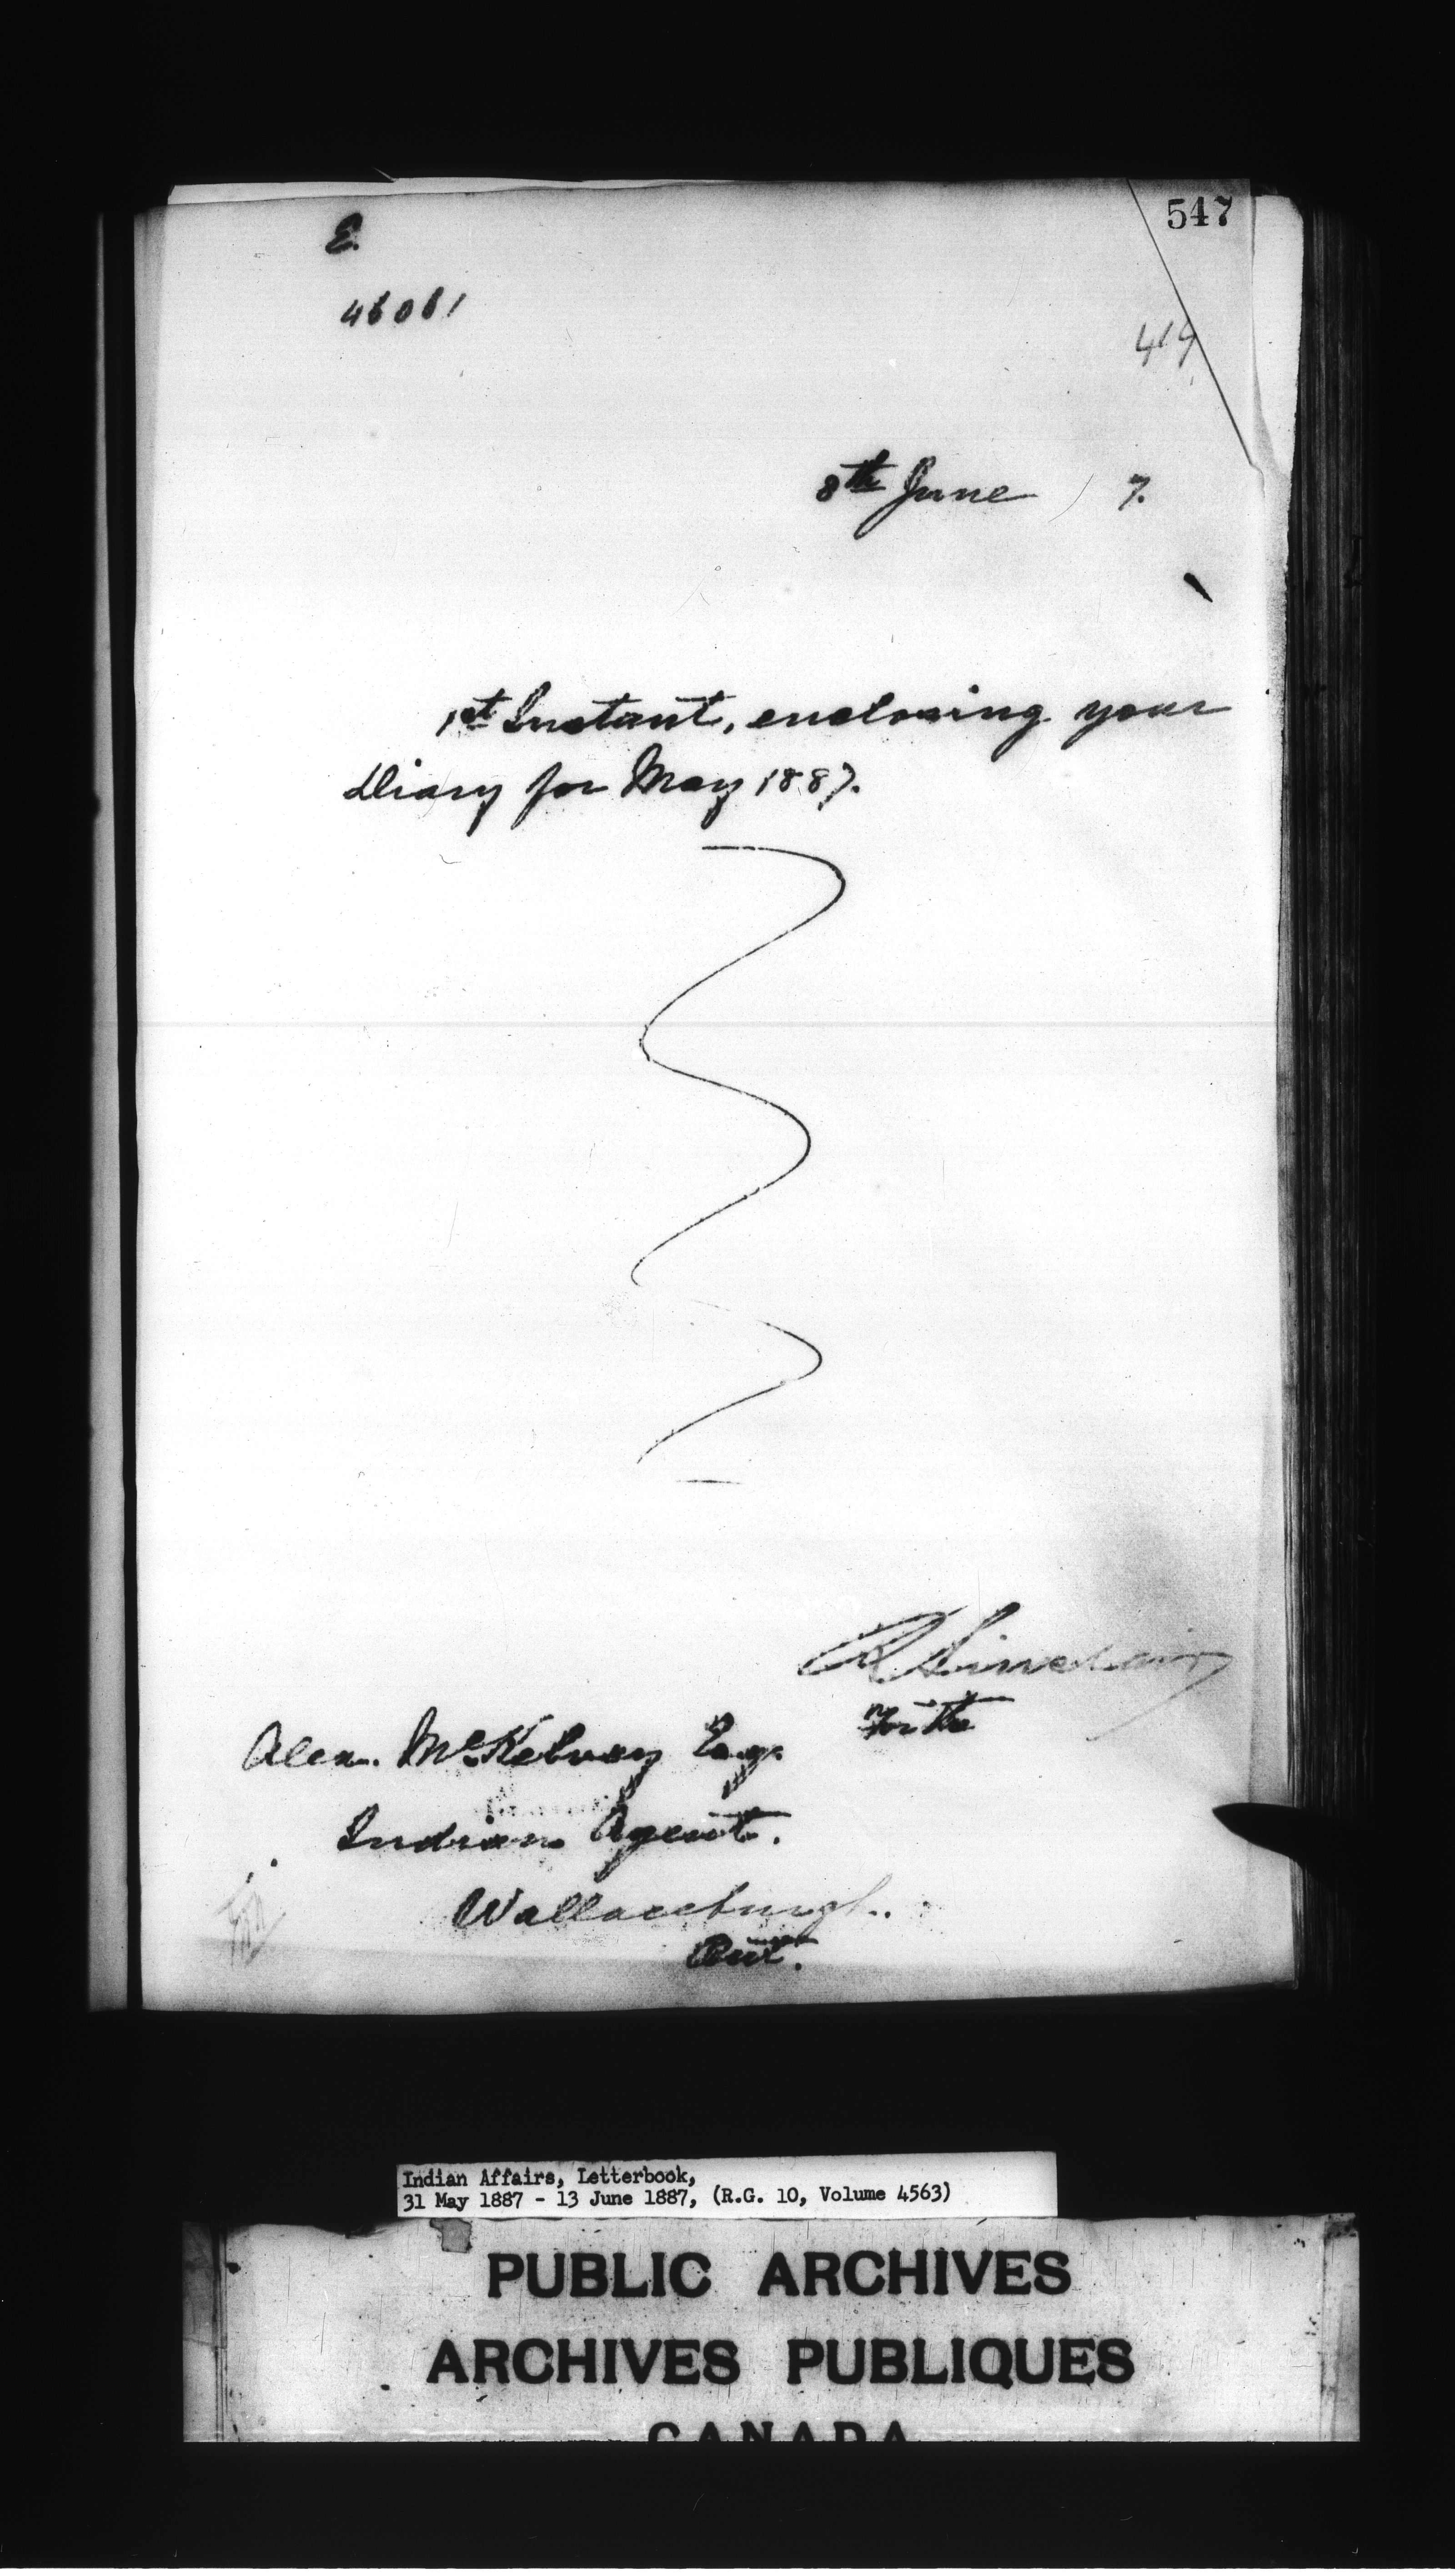 547
E.
46061
414
8th June 7.
1st Instant, enclosing your
Diary for May 1887.
R Sinclair
For the
Alex. McKelvey Esq.
Indian Agent.
Wallaceburgh.
Ont.
Indian Affairs, Letterbook,
31 May 1887 - 13 June 1887, (R.G. 10, Volume 4563)
PUBLIC ARCHIVES
ARCHIVES PUBLIQUES
CANADA